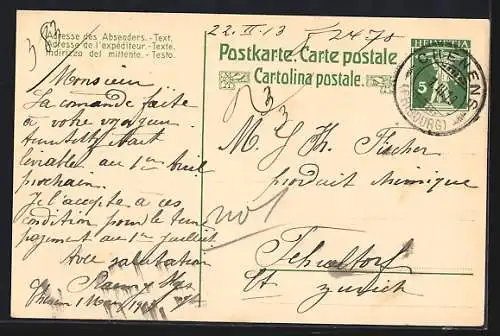 22. II. 13
24 70
Adresse des Absenders. - Text.
Adresse de l'expéditeur. - Texte.
Indirizzo del mittente. - Testo.
Postkarte. Carte postale
Cartolina postale.
HELVETIA
5
CHENENS
(FRIBOURG)
Monsieur
La comande faite
à votre voyageur
livrable au 1er Avril
prochain.
Je l'accepte à ces
condition pour le
payement au 1er Juillet.
Avec salutation
1 Mars
M. J. Th. Fischer
produit chimique
Ct Zurich